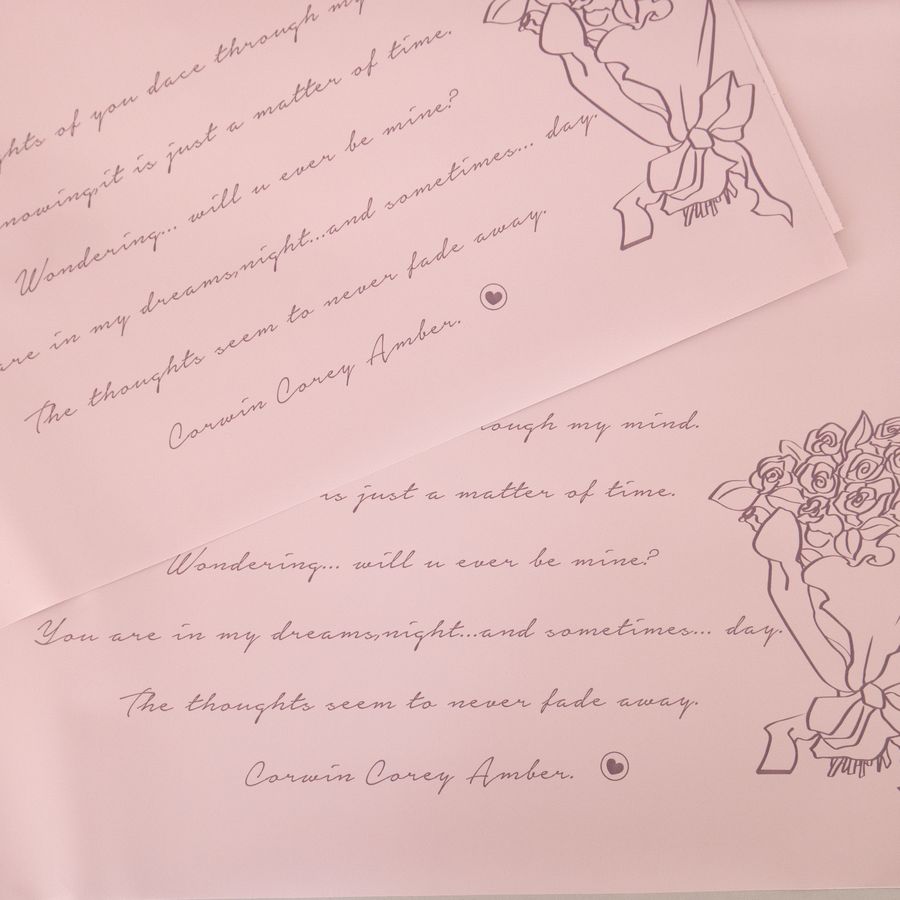 ghts of you dace through my
nowing,it is just a matter of time.
Wondering... will u ever be mine?
are in my dreams,night...and sometimes... day.
The thoughts seem to never fade away.
Corwin Corey Amber.
ough my mind.
is just a matter of time.
Wondering... will u ever be mine?
You are in my dreams,night...and sometimes... day.
The thoughts seem to never fade away.
Corwin Corey Amber.